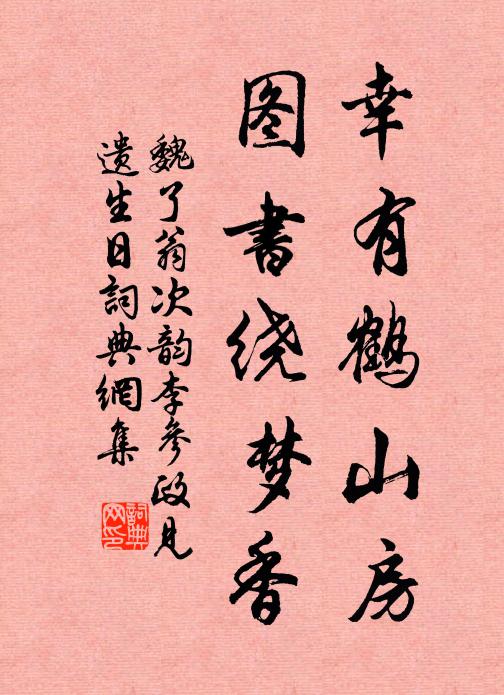 幸有鹤山房
图书绕梦香
魏了翁次韵李参政见
遗生日詞典網集
詞典
网印